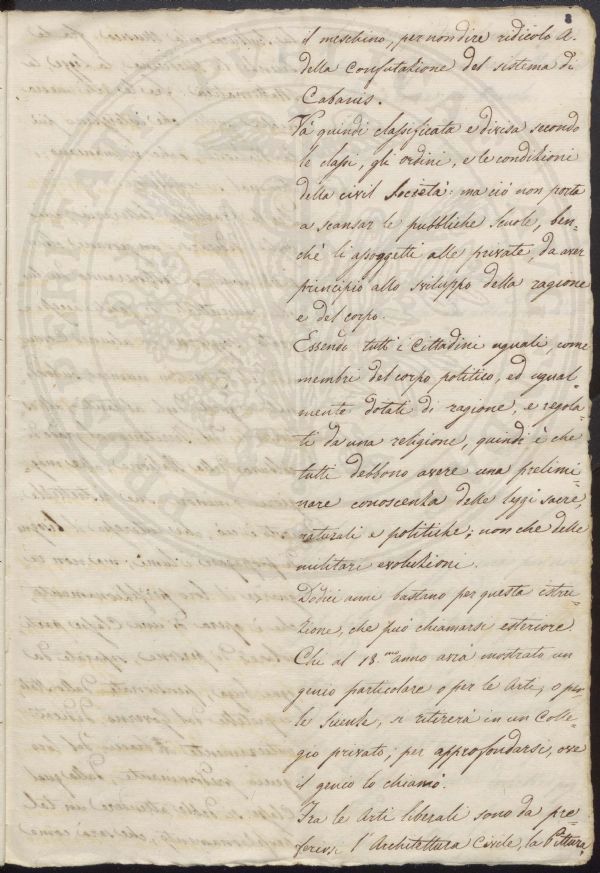 8
il meschino, per non dire ridicolo A.
della Confutazione del sistema di
Cabanis.
Và quindi classificata e divisa secondo
le classi, gli ordini, e le condizioni
della civil Società: ma ciò non porta
a scansar le pubbliche Scuole, ben-
chè li assoggetti alle private, da aver
principio allo sviluppo della ragione
e del corpo.
Essendo tutti i Cittadini uguali, come
membri del corpo politico, ed ugual-
mente dotati di ragione, e regola-
ti da una religione, quindi è che
tutti debbono avere una prelimi-
nare conoscenza delle leggi sacre,
naturali e politiche; non che delle
militari evoluzioni.
Dodici anni bastano per questa istru-
zione, che può chiamarsi esteriore
Chi al 13.mo anno avrà mostrato un
genio particolare o per le Arti, o per
le Scienze, si ritirerà in un Colle-
gio privato; per approfondarsi, ove
il genio lo chiamò.
Fra le Arti liberali sono da pre-
ferirsi l'Architettura Civile, la Pittura,